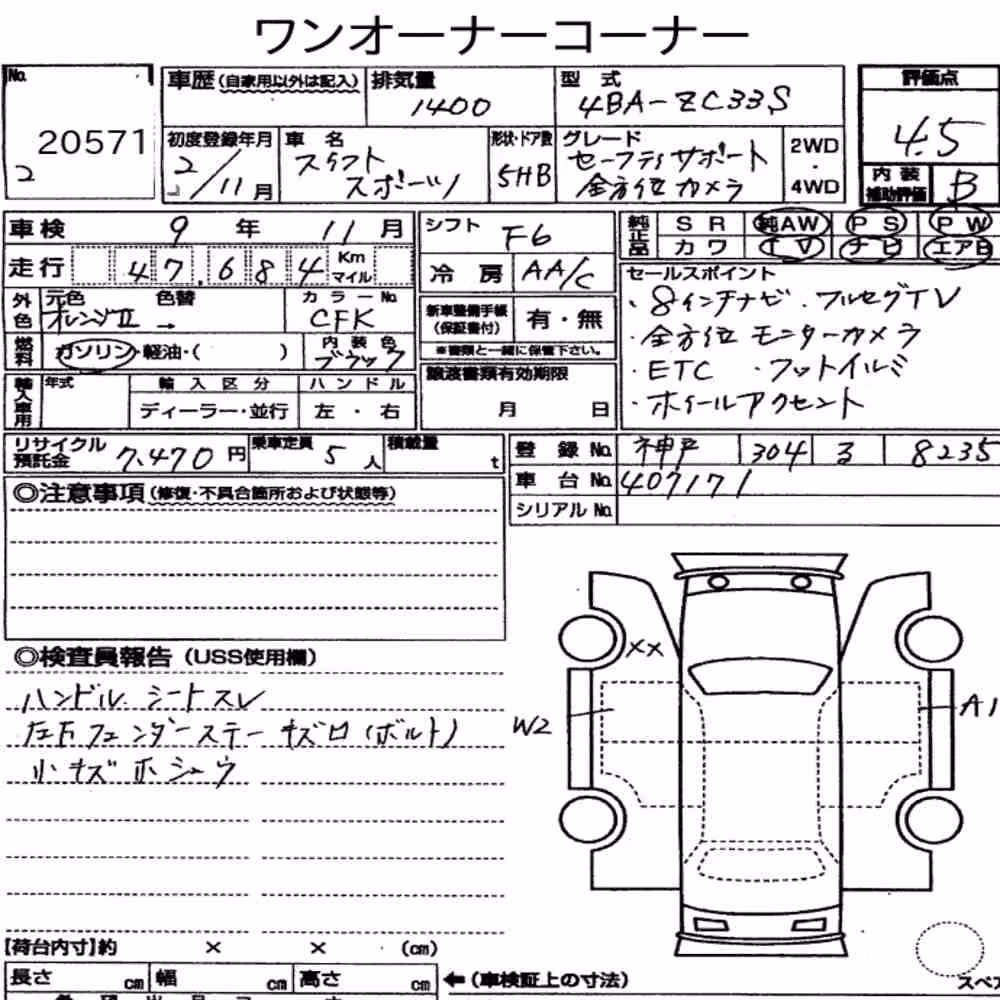 ワンオーナーコーナー
No. 20571
2
車歴 (自家用以外は記入) 排気量 1400 型式 4BA-ZC33S
評価点 4.5
初度登録年月 2/11月 車名 スイフト スポーツ 形状・ドア数 5HB グレード セーフティサポート 全方位カメラ 2WD ・ 4WD
内装補助評価 B
車検 9年 11月 シフト F6
純正品 SR 純AW PS PW
カワ TV ナビ エアB
走行 47,684 Km マイル 冷房 AA/C
外色 元色 オレンジⅡ 色替 → カラーNo. CFK
新車整備手帳 (保証書付) 有・無
※書類と一緒に保管下さい。
燃料 ガソリン・軽油・( ) 内装色 ブラック
セールスポイント
・8インチナビ ・フルセグTV
・全方位モニターカメラ
・ETC ・フットイルミ
・ホイールアクセント
輸入車用 年式 輸入区分 ディーラー・並行 ハンドル 左・右
譲渡書類有効期限
月 日
リサイクル預託金 7,470円 乗車定員 5人 積載量 t
登録No. 神戸 304 8235
車台No. 407171
シリアルNo.
◎注意事項 (修復・不具合箇所および状態等)
◎検査員報告 (USS使用欄)
ハンドル シートスレ
左Fフェンダーステー キズロ(ボルト)
小キズ ホシュウ
XX
W2
A1
【荷台内寸】約 × × (cm)
長さ cm 幅 cm 高さ cm ←(車検証上の寸法)
スペア